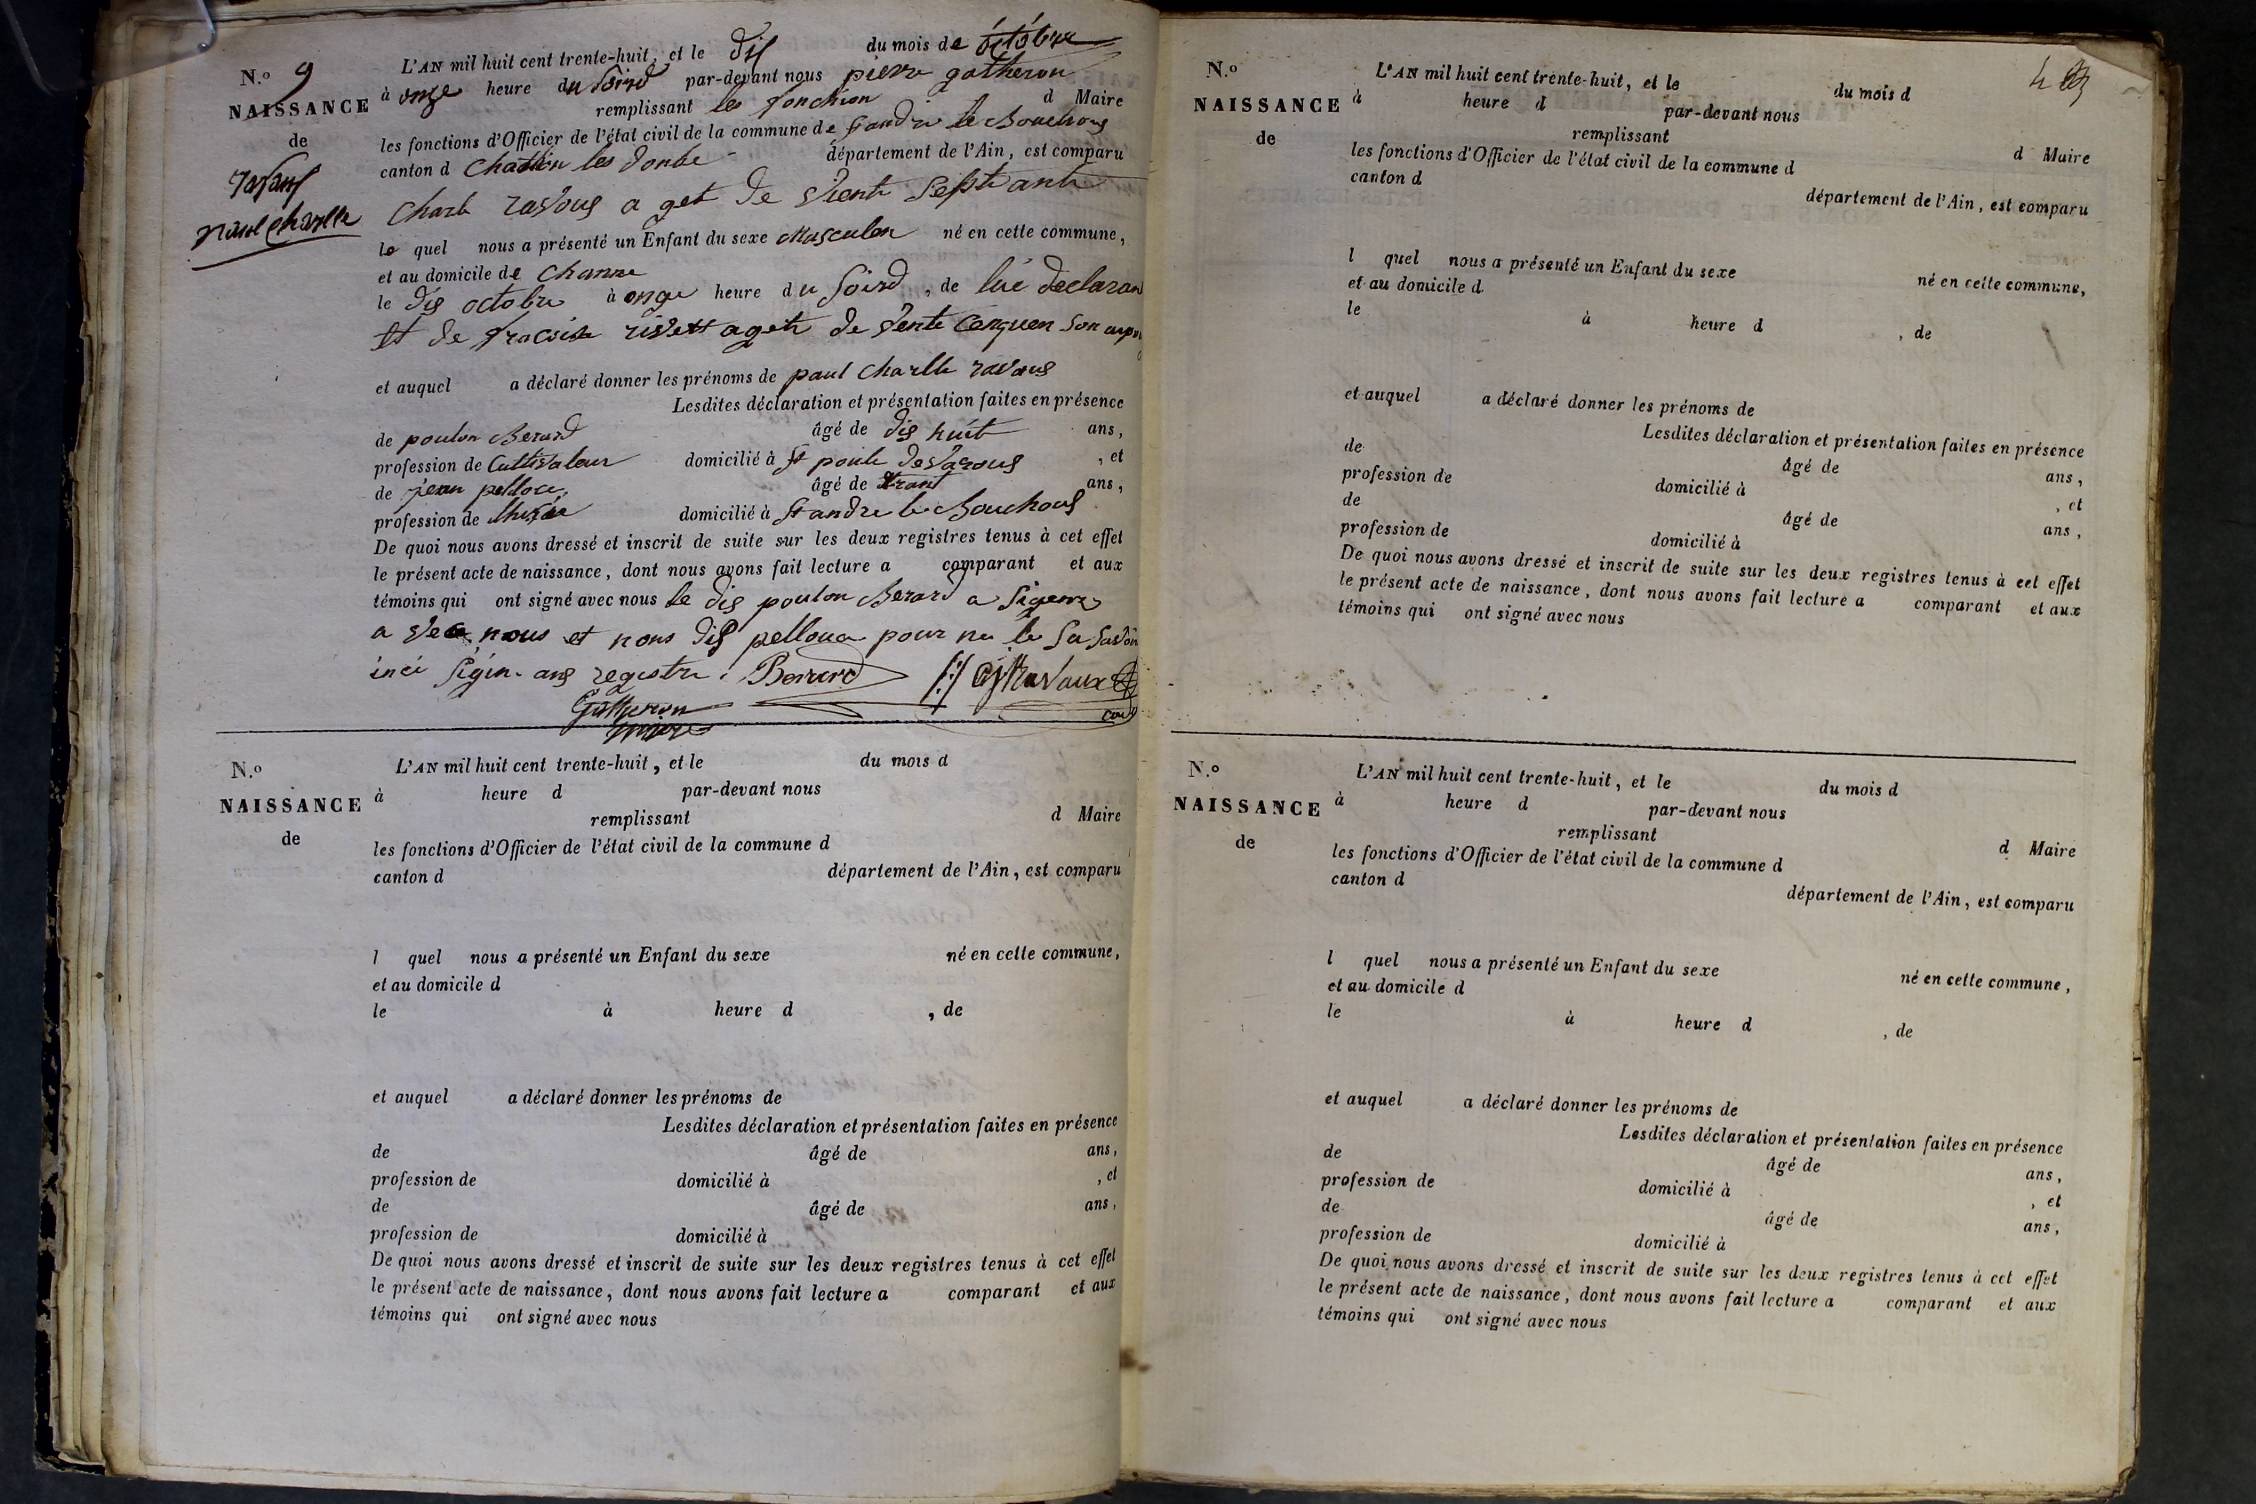 N.º 9
NAISSANCE
de
ravous
paul charlle
L'AN mil huit cent trente-huit, et le dis du mois de octobre
à onze heure du soird par-devant nous pierre gatheron
remplissant les fonction d Maire
les fonctions d'Officier de l'état civil de la commune de st andre le Bouchous
canton d Chatillon les Dombe département de l'Ain, est comparu
Charle ravous a get de trente sept ant
le quel nous a présenté un Enfant du sexe Masculen né en cette commune,
et au domicile de
le dis octobre à onze heure du soird, de lui declaran
et de age de son
et auquel a déclaré donner les prénoms de paul charlle ravous
Lesdites déclaration et présentation faites en présence
de poulon Berard âgé de dis huit ans,
profession de Cultivateur domicilié à St , et
de jean pelloux âgé de trant ans,
profession de domicilié à St andre le Bouchous
De quoi nous avons dressé et inscrit de suite sur les deux registres tenus à cet effet
le présent acte de naissance, dont nous avons fait lecture a comparant et aux
témoins qui ont signé avec nous le dis poulon Berard a signer
a vec nous et nons dis pelloux pour ne le sa savoir
registre Berard
Gatheron
maire
N.º
NAISSANCE
de
L'AN mil huit cent trente-huit, et le du mois d
à heure d par-devant nous
remplissant d Maire
les fonctions d'Officier de l'état civil de la commune d
canton d département de l'Ain, est comparu
l quel nous a présenté un Enfant du sexe né en cette commune,
et au domicile d
le à heure d , de
et auquel a déclaré donner les prénoms de
Lesdites déclaration et présentation faites en présence
de âgé de ans,
profession de domicilié à , et
de âgé de ans,
profession de domicilié à
De quoi nous avons dressé et inscrit de suite sur les deux registres tenus à cet effet
le présent acte de naissance, dont nous avons fait lecture a comparant et aux
témoins qui ont signé avec nous
N.º
NAISSANCE
de
L'AN mil huit cent trente-huit, et le du mois d
à heure d par-devant nous
remplissant d Maire
les fonctions d'Officier de l'état civil de la commune d
canton d département de l'Ain, est comparu
l quel nous a présenté un Enfant du sexe né en cette commune,
et au domicile d
le à heure d , de
et auquel a déclaré donner les prénoms de
Lesdites déclaration et présentation faites en présence
de âgé de ans,
profession de domicilié à , et
de âgé de ans,
profession de domicilié à
De quoi nous avons dressé et inscrit de suite sur les deux registres tenus à cet effet
le présent acte de naissance, dont nous avons fait lecture a comparant et aux
témoins qui ont signé avec nous
N.º
NAISSANCE
de
L'AN mil huit cent trente-huit, et le du mois d
à heure d par-devant nous
remplissant d Maire
les fonctions d'Officier de l'état civil de la commune d
canton d département de l'Ain, est comparu
l quel nous a présenté un Enfant du sexe né en cette commune,
et au domicile d
le à heure d , de
et auquel a déclaré donner les prénoms de
Lesdites déclaration et présentation faites en présence
de âgé de ans,
profession de domicilié à , et
de âgé de ans,
profession de domicilié à
De quoi nous avons dressé et inscrit de suite sur les deux registres tenus à cet effet
le présent acte de naissance, dont nous avons fait lecture a comparant et aux
témoins qui ont signé avec nous